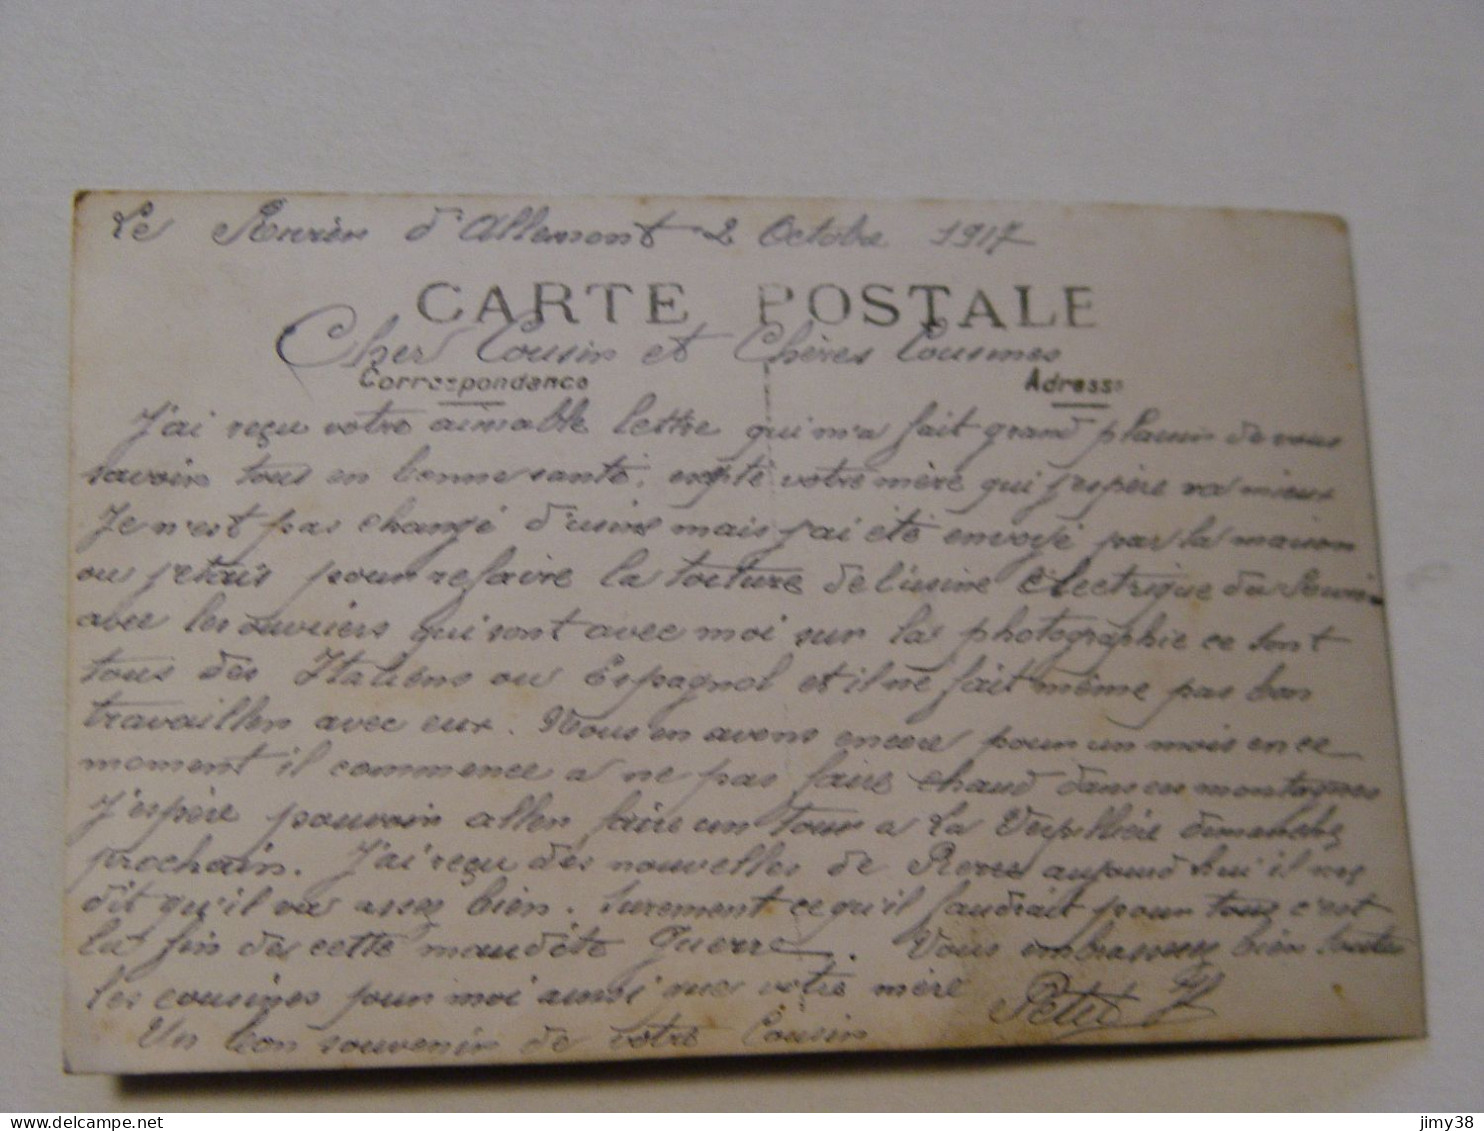 Le Rivier d'Allemont 2 Octobre 1917
CARTE POSTALE
Cher Cousin et Chères Cousines
Correspondance Adresse
J'ai reçu votre aimable lettre qui m'a fait grand plaisir de vous
savoir tous en bonne santé, exepté votre mère qui j'espère va mieux
Je n'est pas changé d'usine mais j'ai été envoyé par la maison
ou j'etais pour refaire la toiture de l'usine électrique du
avec les ouvriers qui sont avec moi sur la photographie ce sont
tous des Italiens ou Espagnol et il ne fait même pas bon
travailler avec eux. Nous en avons encore pour un mois en ce
moment il commence a ne pas faire chaud dans ces montagnes
J'espère pouvoir aller faire un tour a La Verpillière dimanche
prochain. J'ai reçu des nouvelles de aujourd'hui il me
dit qu'il va assez bien. Surement ce qu'il faudrait pour tous c'est
la fin de cette maudite Guerre. Vous embrasserez bien toutes
les cousines pour moi ainsi que votre mère
Un bon souvenir de votre Cousin Petit
jimy38